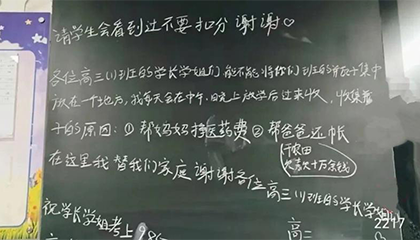 请学生会看到过不要扣分 谢谢♡
各位高三(1)班的学长学姐们,能不能将你们班的瓶子集中
放在一个地方,我每天会在中午,晚上放学后过来收,收集瓶
子的原因:①帮妈妈挣医药费②帮爸爸还帐
在这里我替我们家庭谢谢各位高三(1)班的学长学姐
欠农田
欠十万余钱
祝学长学姐考上985
高三
2217